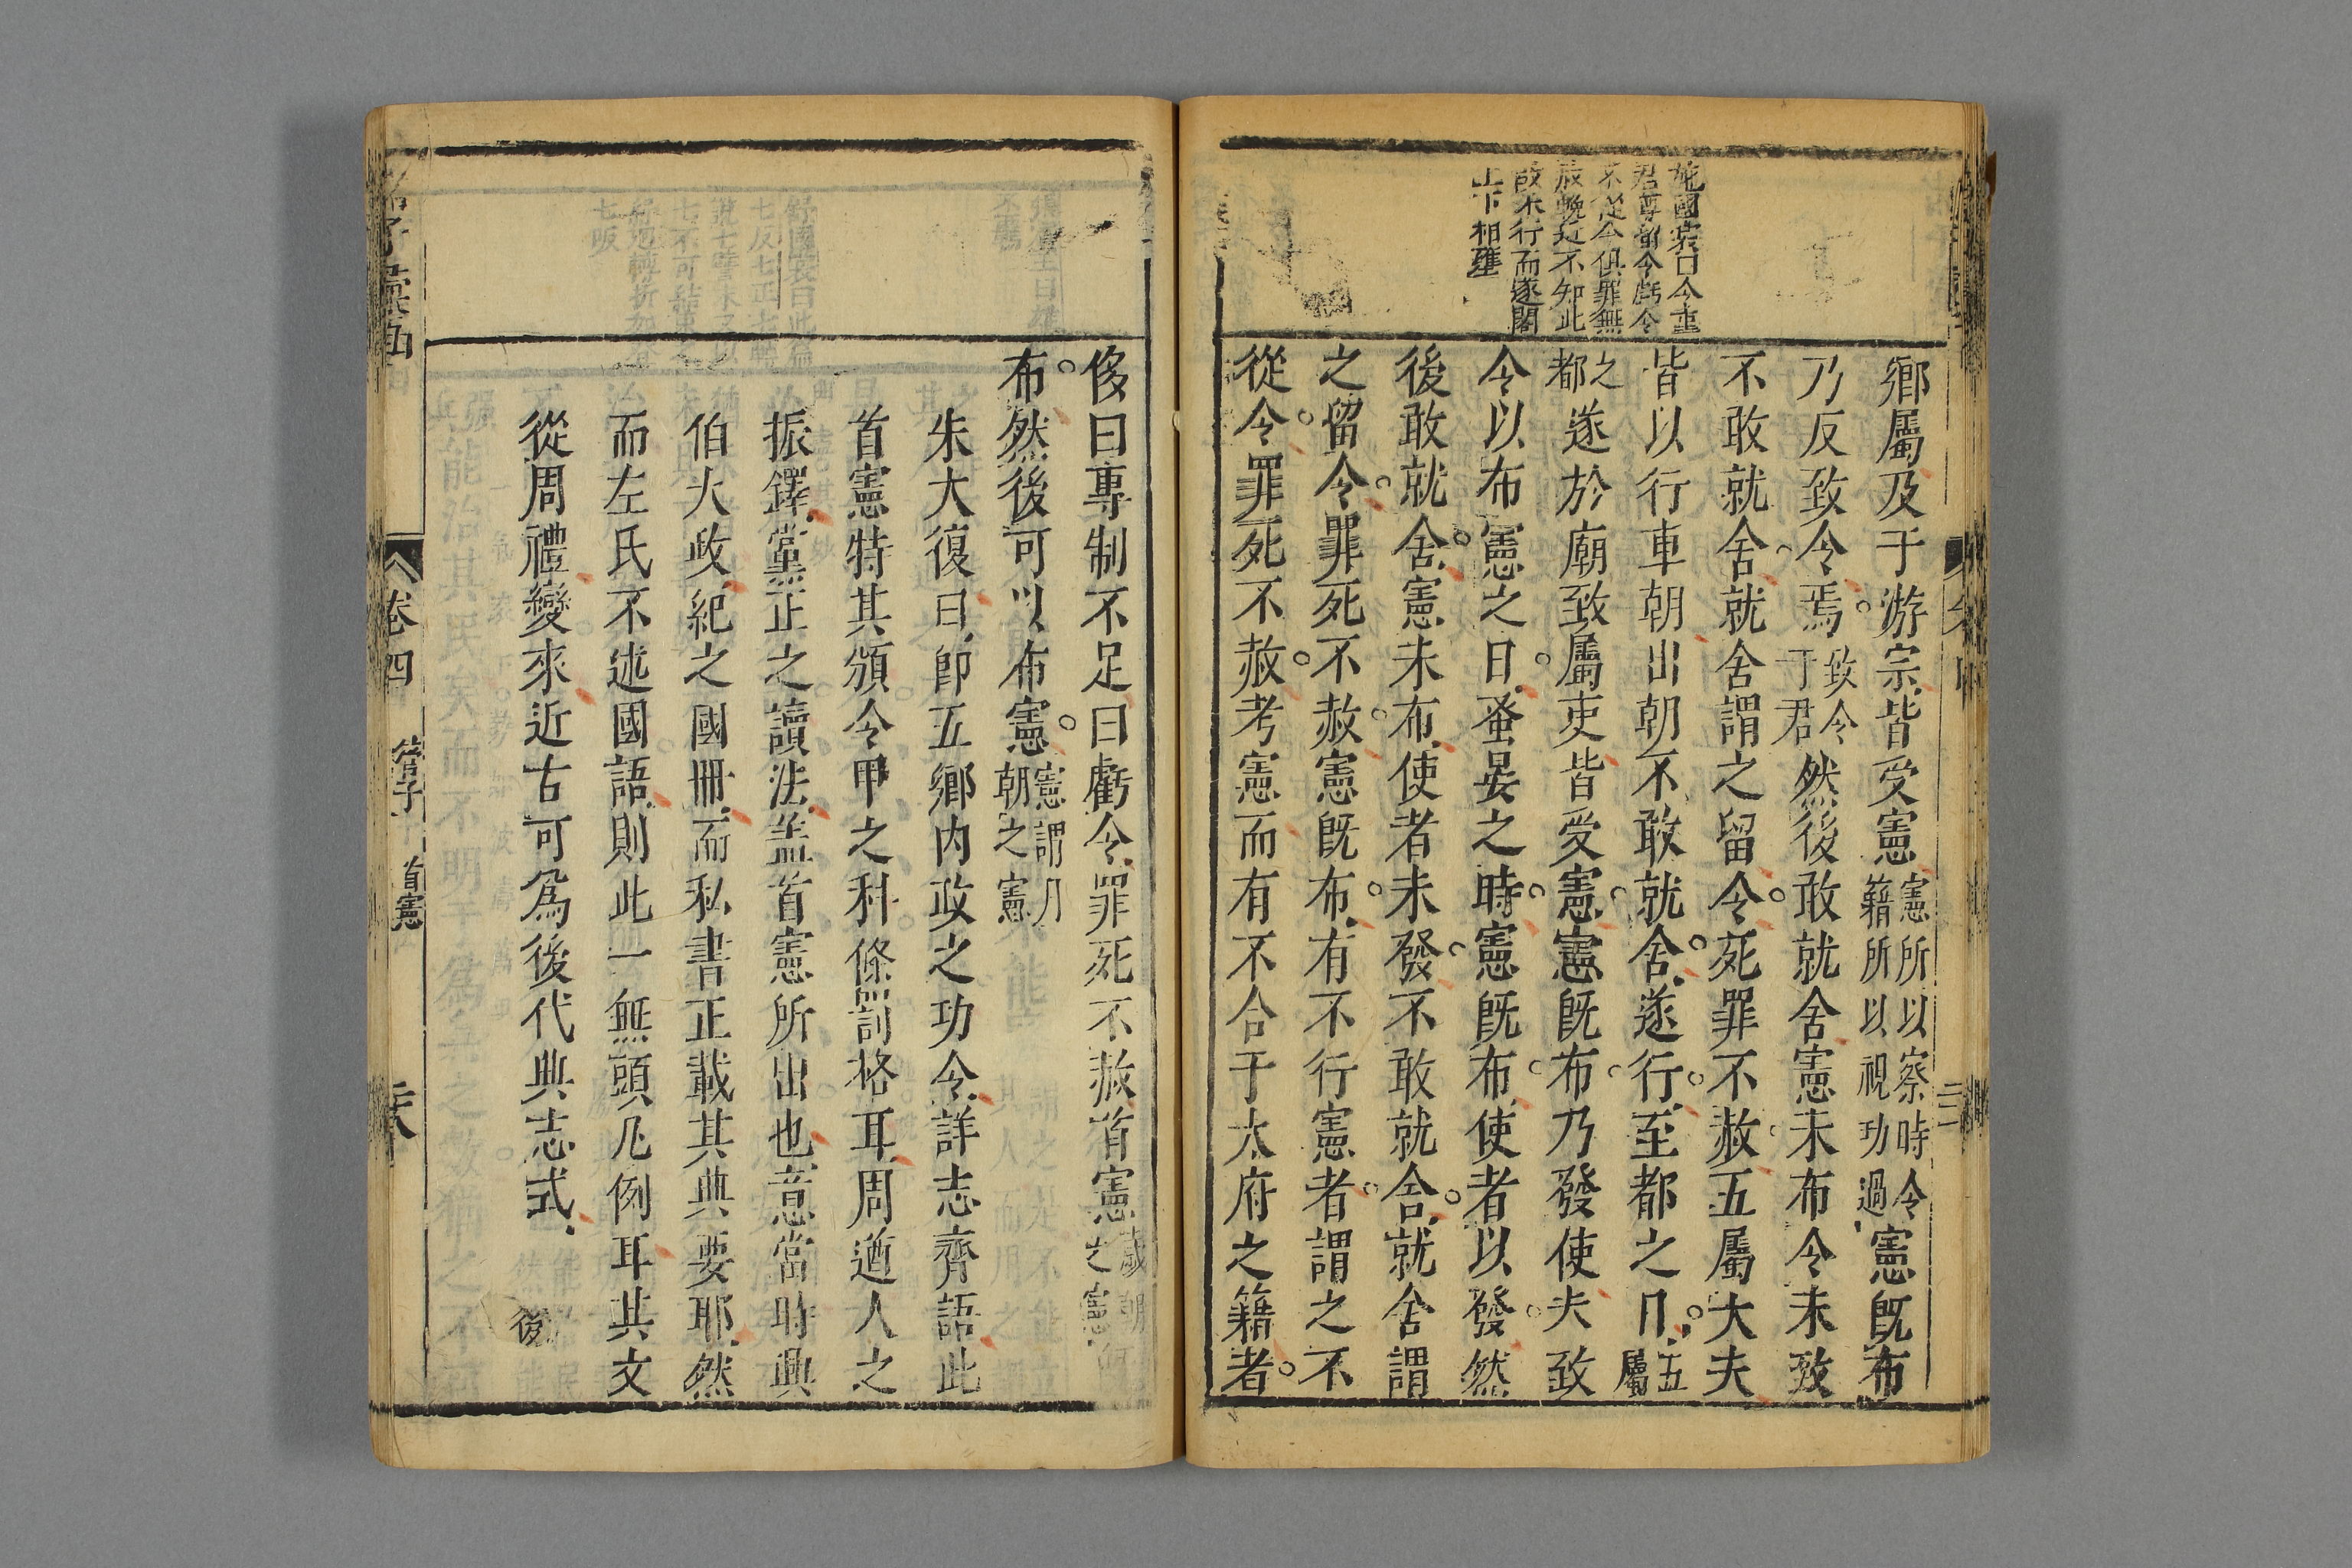 施國宾口令重
君尊留令虧令
不從令俱罪無
赦晚近不知此
故未行而遂閣
上下相壅
鄉屬及于游宗皆受憲憲所以察時令
籍所以視功過憲既布
乃反致令焉致令
于君然後敢就舍憲未布令未致
不敢就舍就舍謂之留令死罪不赦五屬大夫
皆以行車朝出朝不敢就舍遂行至都之日五
屬
之
都遂於廟致屬吏皆受憲憲既布乃發使夫致
令以布憲之日蚤晏之時憲既布使者以發然
後敢就舍憲未布使者未發不敢就舍就舍謂
之留令罪死不赦憲既布有不行憲者謂之不
從令罪死不赦考憲而有不合于太府之籍者
侈曰專制不足曰虧令罪死不赦首憲歲朝
之憲
布然後可以布憲憲謂月
朝之憲
朱大復曰即五鄉内政之功令詳志齊語此
首憲特其頒令甲之科條罰格耳周遒人之
振鐸黨正之讀法盖首憲所出也意當時典
伯大政紀之國冊而私書正載其典要耶然
而左氏不述國語則此一無頭凡例耳其文
從周禮變來近古可為後代典志式
後
卷四
管子
首憲